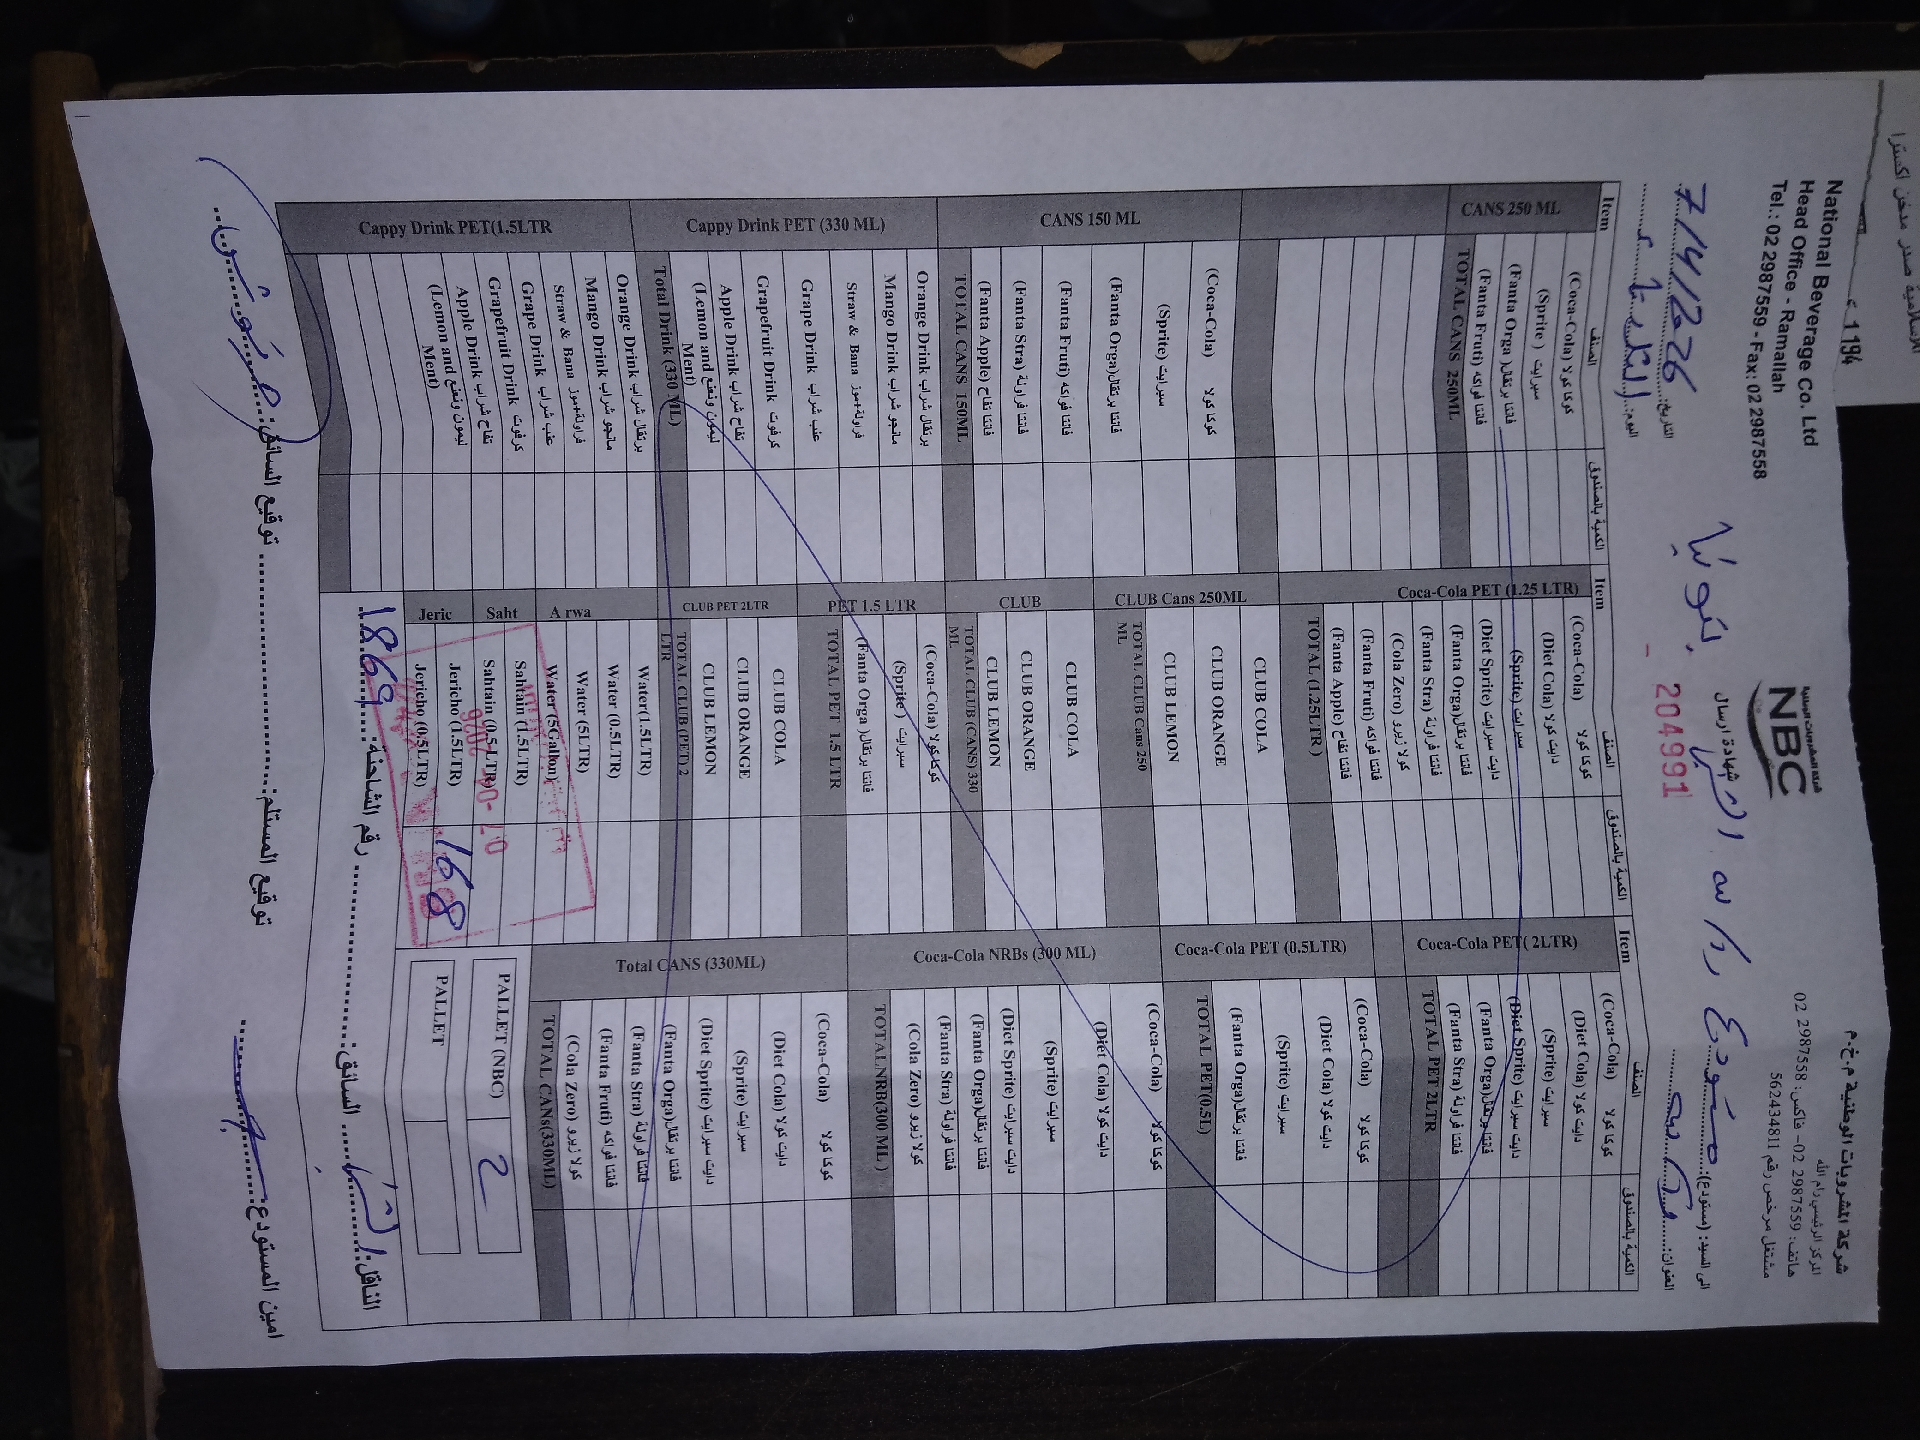 الإسلامية صدر مدخن اكسترا
1194
National Beverage Co. Ltd
Head Office - Ramallah
Tel.: 02 2987559 - Fax: 02 2987558
شركة المشروبات الوطنية
NBC
شركة المشروبات الوطنية م.خ.م
المركز الرئيسي رام الله
هاتف: 2987559 02- فاكس: 2987558 02
مشتغل مرخص رقم 562434811
7/4/2026 التاريخ:
اليوم: الثلاثاء
شهادة ارسال
204991
الى السيد: (مستودع):
العنوان:
Item الصنف الكمية بالصندوق
CANS 250 ML
(Coca-Cola) كوكا كولا
(Sprite) سبرايت
(Fanta Orga) فانتا برتقال
(Fanta Fruti) فانتا فواكه
TOTAL CANS 250ML
CANS 150 ML
(Coca-Cola) كوكا كولا
(Sprite) سبرايت
(Fanta Orga) فانتا برتقال
(Fanta Fruti) فانتا فواكه
(Fanta Stra) فانتا فراولة
(Fanta Apple) فانتا تفاح
TOTAL CANS 150ML
Cappy Drink PET (330 ML)
Orange Drink برتقال شراب
Mango Drink مانجو شراب
Straw & Bana فراولة+موز
Grape Drink عنب شراب
Grapefruit Drink كرفوت
Apple Drink تفاح شراب
(Lemon and ليمون ونعنع
Ment)
Total Drink (330 ML)
Cappy Drink PET(1.5LTR
Orange Drink برتقال شراب
Mango Drink مانجو شراب
Straw & Bana فراولة+موز
Grape Drink عنب شراب
Grapefruit Drink كرفوت
Apple Drink تفاح شراب
(Lemon and ليمون ونعنع
Ment)
Item الصنف الكمية بالصندوق
Coca-Cola PET (1.25 LTR)
(Coca-Cola) كوكا كولا
(Diet Cola) دايت كولا
(Sprite) سبرايت
(Diet Sprite) دايت سبرايت
(Fanta Orga) فانتا برتقال
(Fanta Stra) فانتا فراولة
(Cola Zero) كولا زيرو
(Fanta Fruti) فانتا فواكه
(Fanta Apple) فانتا تفاح
TOTAL (1.25LTR)
CLUB Cans 250ML
CLUB COLA
CLUB ORANGE
CLUB LEMON
TOTAL CLUB Cans 250
ML
CLUB
CLUB COLA
CLUB ORANGE
CLUB LEMON
TOTAL CLUB (CANS) 330
ML
PET 1.5 LTR
(Coca-Cola) كوكا كولا
(Sprite) سبرايت
(Fanta Orga) فانتا برتقال
TOTAL PET 1.5 LTR
CLUB PET 2LTR
CLUB COLA
CLUB ORANGE
CLUB LEMON
TOTAL CLUB (PET) 2
LTR
Arwa
Water(1.5LTR)
Water (0.5LTR)
Water (5LTR)
Water (5Gallon)
Saht
Sahtain (1.5LTR)
Sahtain (0.5LTR)
Jeric
Jericho (1.5LTR) 168
Jericho (0.5LTR)
Item الصنف الكمية بالصندوق
Coca-Cola PET( 2LTR)
(Coca-Cola) كوكا كولا
(Diet Cola) دايت كولا
(Sprite) سبرايت
(Diet Sprite) دايت سبرايت
(Fanta Orga) فانتا برتقال
(Fanta Stra) فانتا فراولة
TOTAL PET 2LTR
Coca-Cola PET (0.5LTR)
(Coca-Cola) كوكا كولا
(Diet Cola) دايت كولا
(Sprite) سبرايت
(Fanta Orga) فانتا برتقال
TOTAL PET(0.5L)
Coca-Cola NRBs (300 ML)
(Coca-Cola) كوكا كولا
(Diet Cola) دايت كولا
(Sprite) سبرايت
(Diet Sprite) دايت سبرايت
(Fanta Orga) فانتا برتقال
(Fanta Stra) فانتا فراولة
(Cola Zero) كولا زيرو
TOTAL NRB(300 ML )
Total CANS (330ML)
(Coca-Cola) كوكا كولا
(Diet Cola) دايت كولا
(Sprite) سبرايت
(Diet Sprite) دايت سبرايت
(Fanta Orga) فانتا برتقال
(Fanta Stra) فانتا فراولة
(Fanta Fruti) فانتا فواكه
(Cola Zero) كولا زيرو
TOTAL CANs(330ML)
PALLET (NBC) 2
PALLET
07-04-2026
الناقل: السائق: رقم الشاحنة: 1869
امين المستودع: توقيع المستلم: توقيع السائق: